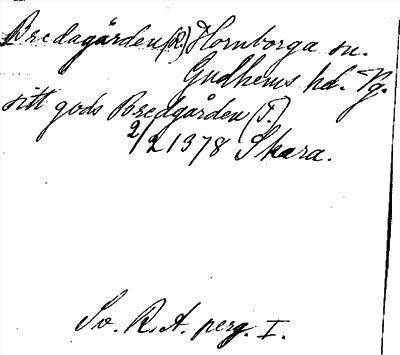 Bredagården (R.) Hornborga sn.
Gudhems hd. Vg.
sitt gods Bredgården (T.)
2/2 1378 Skara.
Sv. R.A. perg. I.